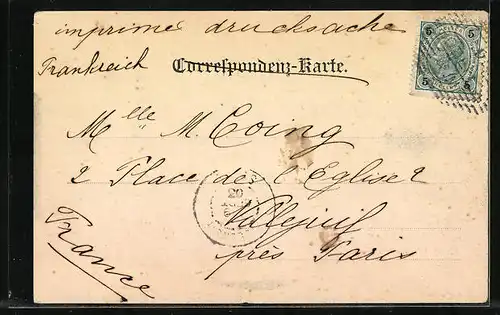 imprimé drucksache
Frankreich
Correspondenz-Karte.
5 5
5 5
Mlle M. Coing
2 Place de l'Eglise 2
Villejuif
près Paris
France
03